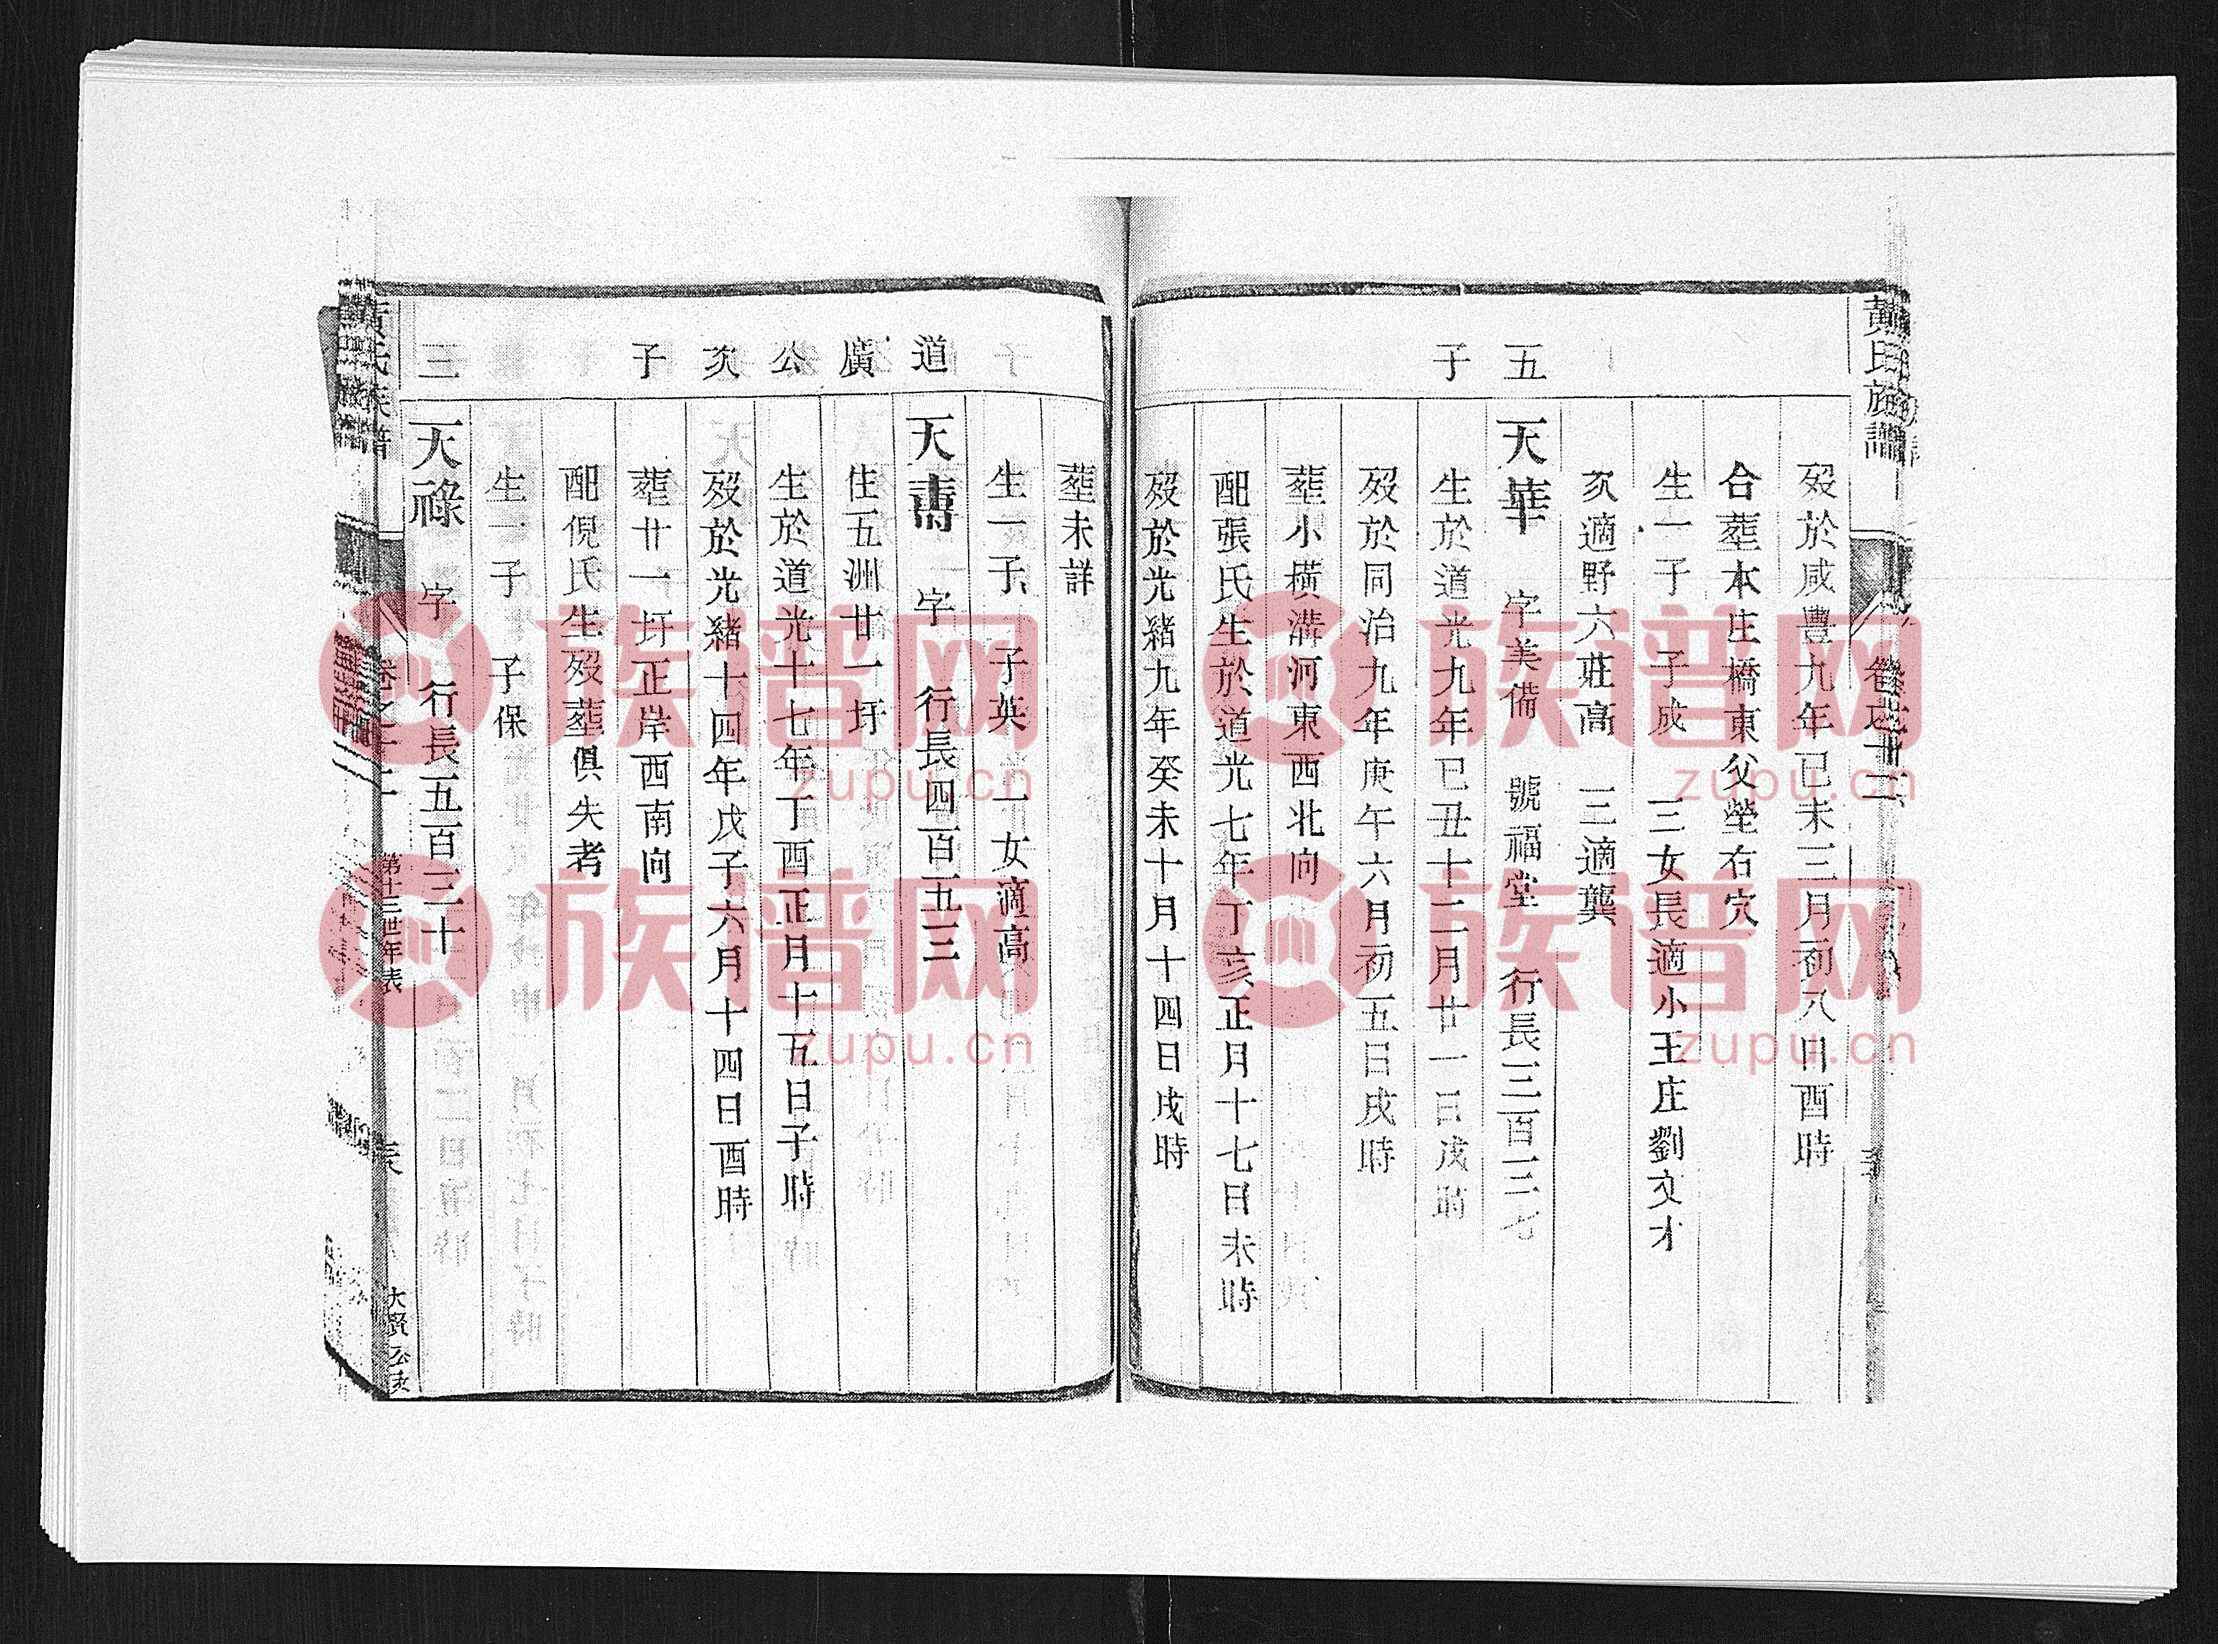 黃氏族譜
卷之十二
五子
歿於咸豐九年己未三月初八日酉時
合塟本庄橋東父塋右穴
生一子 子成 三女長適小王庄劉文才
次適野六莊高 三適龔
天華 字美備 號福堂 行長三百三七
生於道光九年己丑十二月廿一日戌時
歿於同治九年庚午六月初五日戌時
塟小橫溝河東西北向
配張氏生於道光七年丁亥正月十七日未時
歿於光緒九年癸未十月十四日戌時
道廣公次子
三
塟未詳
生一子 子英 一女適高
天壽 字 行長四百五三
住五洲廿一圩
生於道光十七年丁酉正月十五日子時
歿於光緒十四年戊子六月十四日酉時
塟廿一圩正岸西南向
配倪氏生歿塟俱失考
生一子 子保
天祿 字 行長五百三十
黃氏族譜
卷之十二
第十三世年表
大賢公支
族谱网
zupu.cn
族谱网
zupu.cn
族谱网
zupu.cn
族谱网
zupu.cn